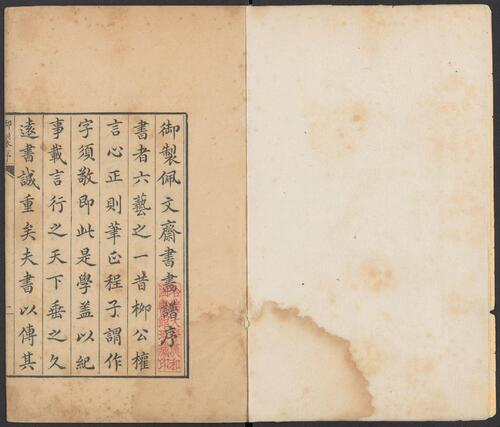 御製佩文齋書畫譜序
書者六藝之一昔柳公權
言心正則筆正程子謂作
字須敬即此是學葢以紀
事載言行之天下垂之久
遠書誠重矣夫書以傳其